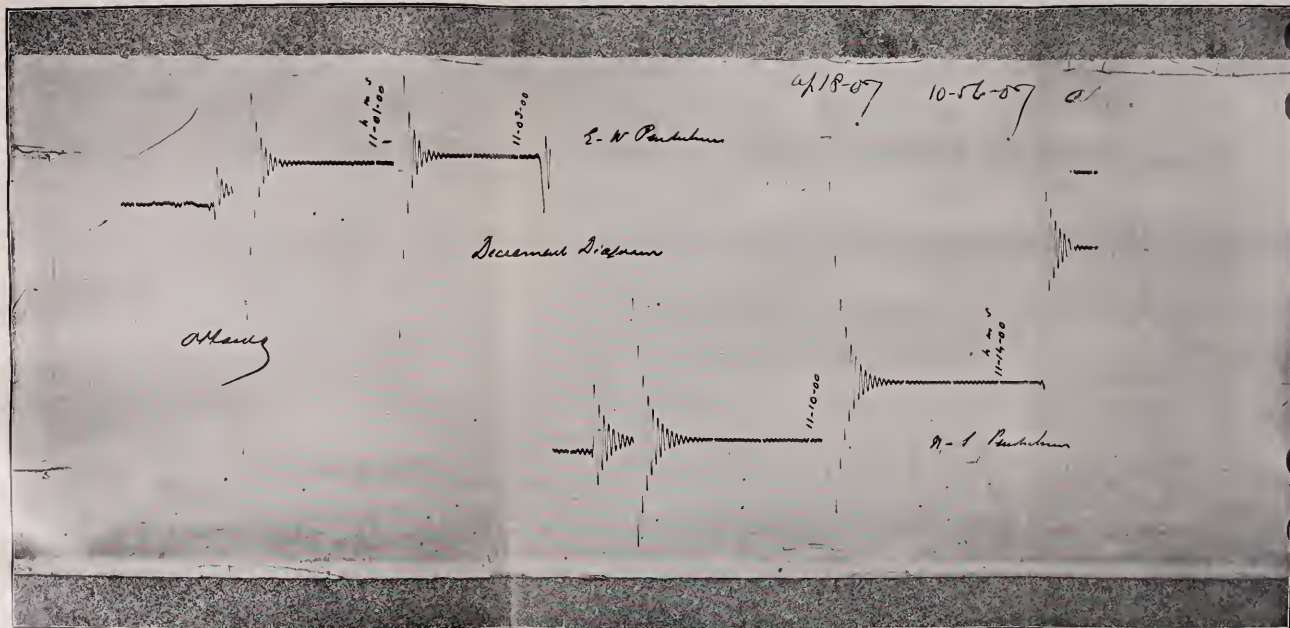 Ap 18-07 10-56-07
h m s
11-01-00
11-03-00
E-W Pendulum
Decrement Diagram
Ottawa
11-10-00
h m s
11-14-00
N-S Pendulum